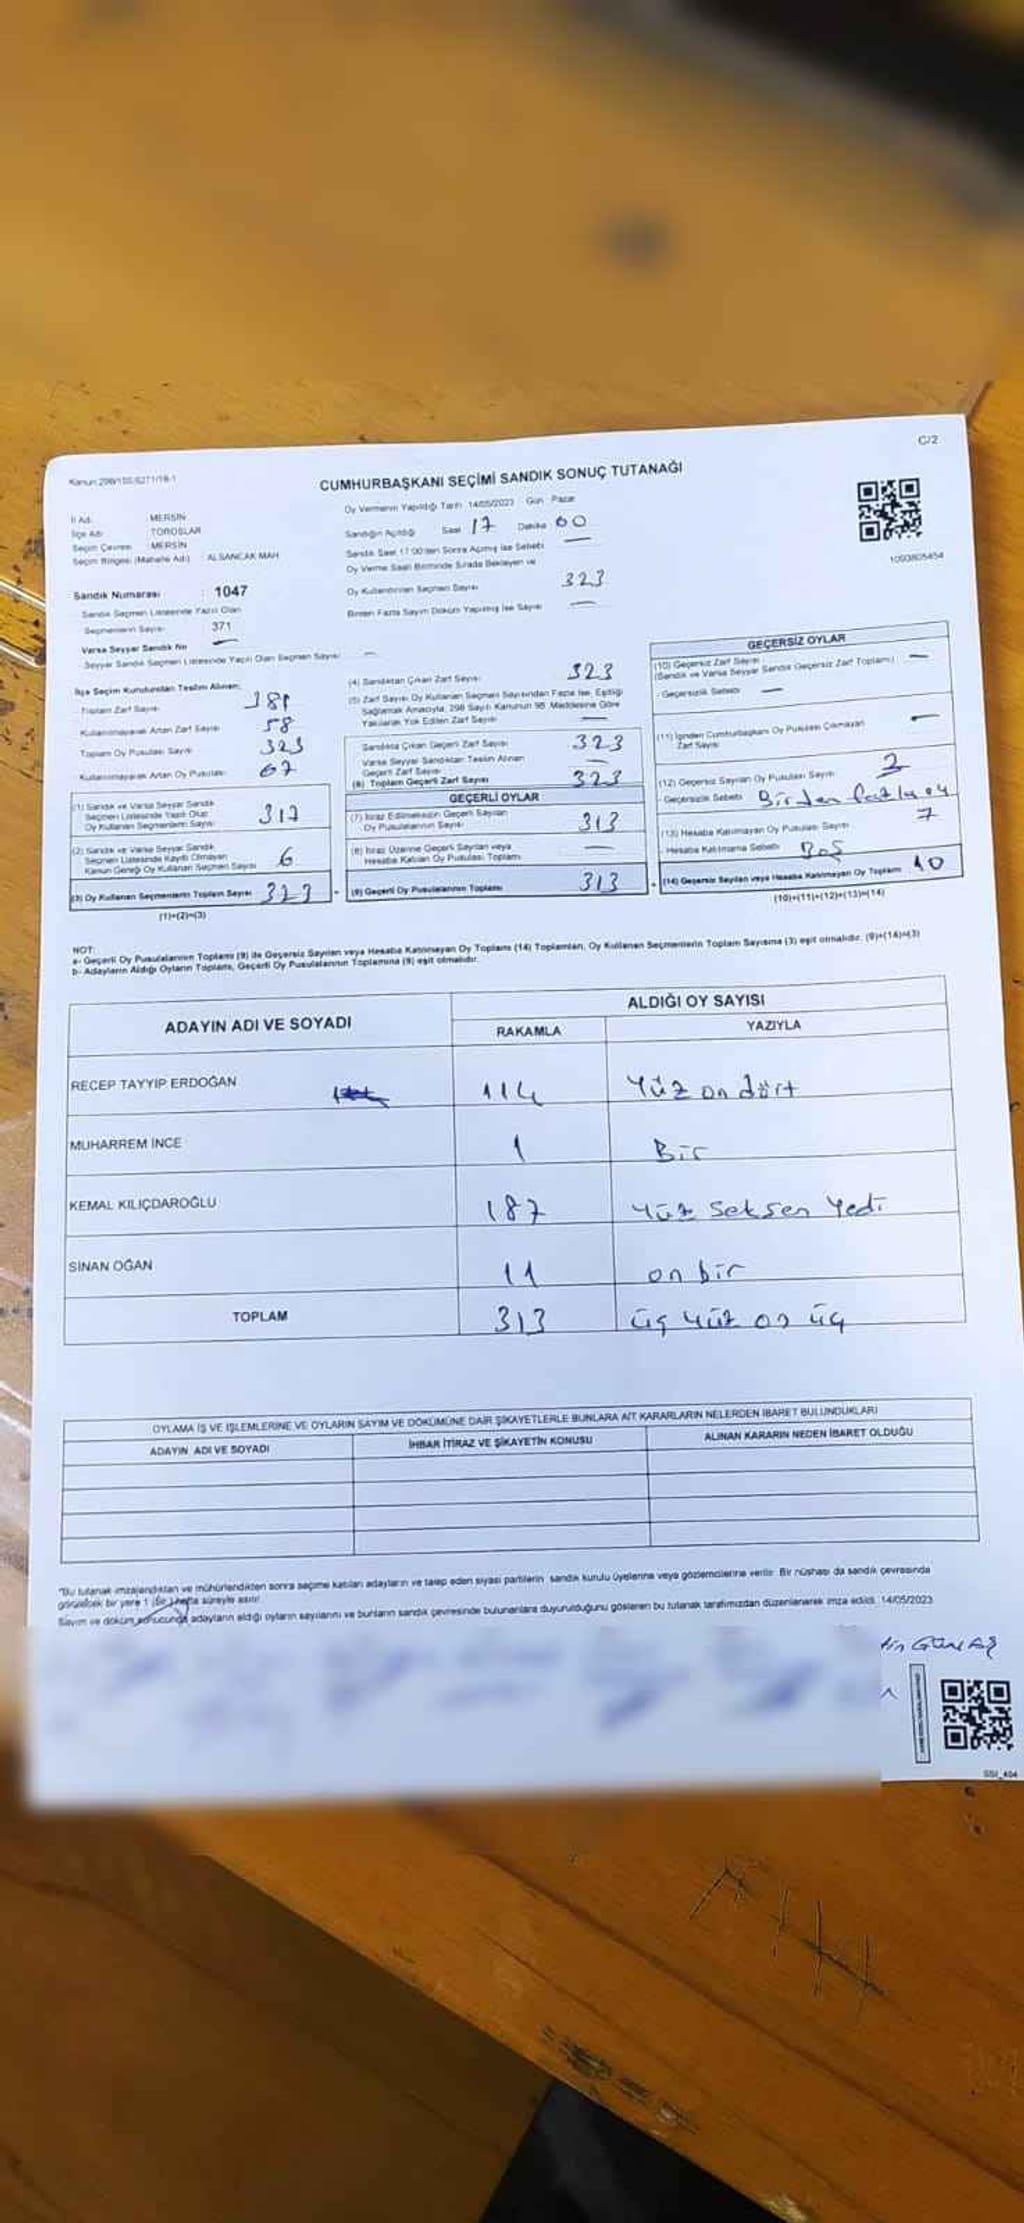 C/2
Kanun:298/105;6271/18-1
CUMHURBAŞKANI SEÇİMİ SANDIK SONUÇ TUTANAĞI
İl Adı : MERSİN
İlçe Adı : TOROSLAR
Seçim Çevresi : MERSİN
Seçim Bölgesi (Mahalle Adı) : ALSANCAK MAH
Sandık Numarası : 1047
Sandık Seçmen Listesinde Yazılı Olan
Seçmenlerin Sayısı 371
Varsa Seyyar Sandık No —
Seyyar Sandık Seçmen Listesinde Yazılı Olan Seçmen Sayısı —
Oy Vermenin Yapıldığı Tarih 14/05/2023 Gün Pazar
Sandığın Açıldığı Saat 17 Dakika 00
Sandık Saat 17:00'den Sonra Açılmış İse Sebebi —
Oy Verme Saati Bitiminde Sırada Bekleyen ve
Oy Kullandırılan Seçmen Sayısı 323
Birden Fazla Sayım Döküm Yapılmış İse Sayısı —
1093805454
İlçe Seçim Kurulundan Teslim Alınan;
Toplam Zarf Sayısı 381
Kullanılmayarak Artan Zarf Sayısı 58
Toplam Oy Pusulası Sayısı 323
Kullanılmayarak Artan Oy Pusulası 67
(1) Sandık ve Varsa Seyyar Sandık
Seçmen Listesinde Yazılı Olup
Oy Kullanan Seçmenlerin Sayısı 317
(2) Sandık ve Varsa Seyyar Sandık
Seçmen Listesinde Kayıtlı Olmayan
Kanun Gereği Oy Kullanan Seçmen Sayısı 6
(3) Oy Kullanan Seçmenlerin Toplam Sayısı 323
(1)+(2)=(3)
(4) Sandıktan Çıkan Zarf Sayısı 323
(5) Zarf Sayısı Oy Kullanan Seçmen Sayısından Fazla İse, Eşitliği
Sağlamak Amacıyla, 298 Sayılı Kanunun 98. Maddesine Göre
Yakılarak Yok Edilen Zarf Sayısı —
Sandıkta Çıkan Geçerli Zarf Sayısı 323
Varsa Seyyar Sandıktan Teslim Alınan
Geçerli Zarf Sayısı —
(6) Toplam Geçerli Zarf Sayısı 323
GEÇERLİ OYLAR
(7) İtiraz Edilmeksizin Geçerli Sayılan
Oy Pusulalarının Sayısı 313
(8) İtiraz Üzerine Geçerli Sayılan veya
Hesaba Katılan Oy Pusulası Toplamı —
(9) Geçerli Oy Pusulalarının Toplamı 313
GEÇERSİZ OYLAR
(10) Geçersiz Zarf Sayısı
(Sandık ve Varsa Seyyar Sandık Geçersiz Zarf Toplamı) —
- Geçersizlik Sebebi —
(11) İçinden Cumhurbaşkanı Oy Pusulası Çıkmayan
Zarf Sayısı —
(12) Geçersiz Sayılan Oy Pusulası Sayısı 3
- Geçersizlik Sebebi Birden fazla oy
(13) Hesaba Katılmayan Oy Pusulası Sayısı 7
- Hesaba Katılmama Sebebi Boş
(14) Geçersiz Sayılan veya Hesaba Katılmayan Oy Toplamı 10
(10)+(11)+(12)+(13)=(14)
NOT:
a- Geçerli Oy Pusulalarının Toplamı (9) ile Geçersiz Sayılan veya Hesaba Katılmayan Oy Toplamı (14) Toplamları, Oy Kullanan Seçmenlerin Toplam Sayısına (3) eşit olmalıdır. (9)+(14)=(3)
b- Adayların Aldığı Oyların Toplamı, Geçerli Oy Pusulalarının Toplamına (9) eşit olmalıdır.
ADAYIN ADI VE SOYADI ALDIĞI OY SAYISI
RAKAMLA YAZIYLA
RECEP TAYYİP ERDOĞAN 114 Yüz on dört
MUHARREM İNCE 1 Bir
KEMAL KILIÇDAROĞLU 187 Yüz Seksen Yedi
SİNAN OĞAN 11 on bir
TOPLAM 313 üç yüz on üç
OYLAMA İŞ VE İŞLEMLERİNE VE OYLARIN SAYIM VE DÖKÜMÜNE DAİR ŞİKAYETLERLE BUNLARA AİT KARARLARIN NELERDEN İBARET BULUNDUKLARI
ADAYIN ADI VE SOYADI İHBAR İTİRAZ VE ŞİKAYETİN KONUSU ALINAN KARARIN NEDEN İBARET OLDUĞU
"Bu tutanak imzalandıktan ve mühürlendikten sonra seçime katılan adayların ve talep eden siyasi partilerin sandık kurulu üyelerine veya gözlemcilerine verilir. Bir nüshası da sandık çevresinde
görülecek bir yere 1 (Bir) hafta süreyle asılır.
Sayım ve döküm sonucunda adayların aldığı oyların sayılarını ve bunların sandık çevresinde bulunanlara duyurulduğunu gösteren bu tutanak tarafımızdan düzenlenerek imza edildi. 14/05/2023
SSI_404